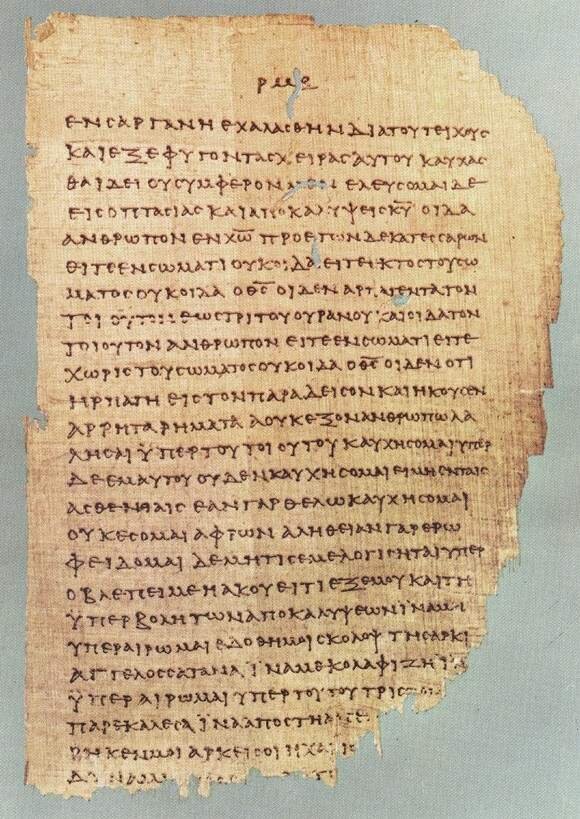 ρμε
ΕΝ ΣΑΡΓΑΝΗ ΕΧΑΛΑΣΘΗΝ ΔΙΑ ΤΟΥ ΤΕΙΧΟΥΣ
ΚΑΙ ΕΞΕΦΥΓΟΝ ΤΑΣ ΧΕΙΡΑΣ ΑΥΤΟΥ ΚΑΥΧΑΣ
ΘΑΙ ΔΕΙ ΟΥ ΣΥΜΦΕΡΟΝ ΕΛΕΥΣΟΜΑΙ ΔΕ
ΕΙΣ ΟΠΤΑΣΙΑΣ ΚΑΙ ΑΠΟΚΑΛΥΨΕΙΣ Κ̅Υ̅ ΟΙΔΑ
ΑΝΘΡΩΠΟΝ ΕΝ Χ̅Ω̅ ΠΡΟ ΕΤΩΝ ΔΕΚΑΤΕΣΣΑΡΩΝ
ΕΙΤΕ ΕΝ ΣΩΜΑΤΙ ΟΥΚ ΟΙΔΑ ΕΙΤΕ ΙΚΤΟΣ ΤΟΥ ΣΩ
ΜΑΤΟΣ ΟΥΚ ΟΙΔΑ Ο Θ̅Σ̅ ΟΙΔΕΝ ΑΡΠΑΓΕΝΤΑ ΤΟΝ
ΤΟΙΟΥΤΟΝ ΕΩΣ ΤΡΙΤΟΥ ΟΥΡΑΝΟΥ ΚΑΙ ΟΙΔΑ ΤΟΝ
ΤΟΙΟΥΤΟΝ ΑΝΘΡΩΠΟΝ ΕΙΤΕ ΕΝ ΣΩΜΑΤΙ ΕΙΤΕ
ΧΩΡΙΣ ΤΟΥ ΣΩΜΑΤΟΣ ΟΥΚ ΟΙΔΑ Ο Θ̅Σ̅ ΟΙΔΕΝ ΟΤΙ
ΗΡΠΑΓΗ ΕΙΣ ΤΟΝ ΠΑΡΑΔΕΙΣΟΝ ΚΑΙ ΗΚΟΥΣΕΝ
ΑΡΡΗΤΑ ΡΗΜΑΤΑ Α ΟΥΚ ΕΞΟΝ ΑΝΘΡΩΠΩ ΛΑ
ΛΗΣΑΙ ΫΠΕΡ ΤΟΥ ΤΟΙΟΥΤΟΥ ΚΑΥΧΗΣΟΜΑΙ ΥΠΕΡ
ΔΕ ΕΜΑΥΤΟΥ ΟΥΔΕΝ ΚΑΥΧΗΣΟΜΑΙ ΕΙ ΜΗ ΕΝ ΤΑΙΣ
ΑΣΘΕΝΙΑΙΣ ΕΑΝ ΓΑΡ ΘΕΛΩ ΚΑΥΧΗΣΟΜΑΙ
ΟΥΚ ΕΣΟΜΑΙ ΑΦΡΩΝ ΑΛΗΘΕΙΑΝ ΓΑΡ ΕΡΩ
ΦΕΙΔΟΜΑΙ ΔΕ ΜΗ ΤΙΣ ΕΜΕ ΛΟΓΙΣΗΤΑΙ ΥΠΕΡ
Ο ΒΛΕΠΕΙ ΜΕ Η ΑΚΟΥΕΙ ΤΙ ΕΞ ΕΜΟΥ ΚΑΙ ΤΗ
ΫΠΕΡΒΟΛΗ ΤΩΝ ΑΠΟΚΑΛΥΨΕΩΝ ΪΝΑ ΜΗ
ΥΠΕΡΑΙΡΩΜΑΙ ΕΔΟΘΗ ΜΟΙ ΣΚΟΛΟΨ ΤΗ ΣΑΡΚΙ
ΑΓΓΕΛΟΣ ΣΑΤΑΝΑ ΪΝΑ ΜΕ ΚΟΛΑΦΙΖΗ ΪΝΑ
ΫΠΕΡΑΙΡΩΜΑΙ ΥΠΕΡ ΤΟΥΤΟΥ ΤΡΙΣ
ΠΑΡΕΚΑΛΕΣΑ ΪΝΑ ΑΠΟΣΤΗ ΑΠ Ε
ΡΗΚΕΝ ΜΟΙ ΑΡΚΕΙ ΣΟΙ Η ΧΑΡΙΣ
ΔΥΝΑΜΙΣ